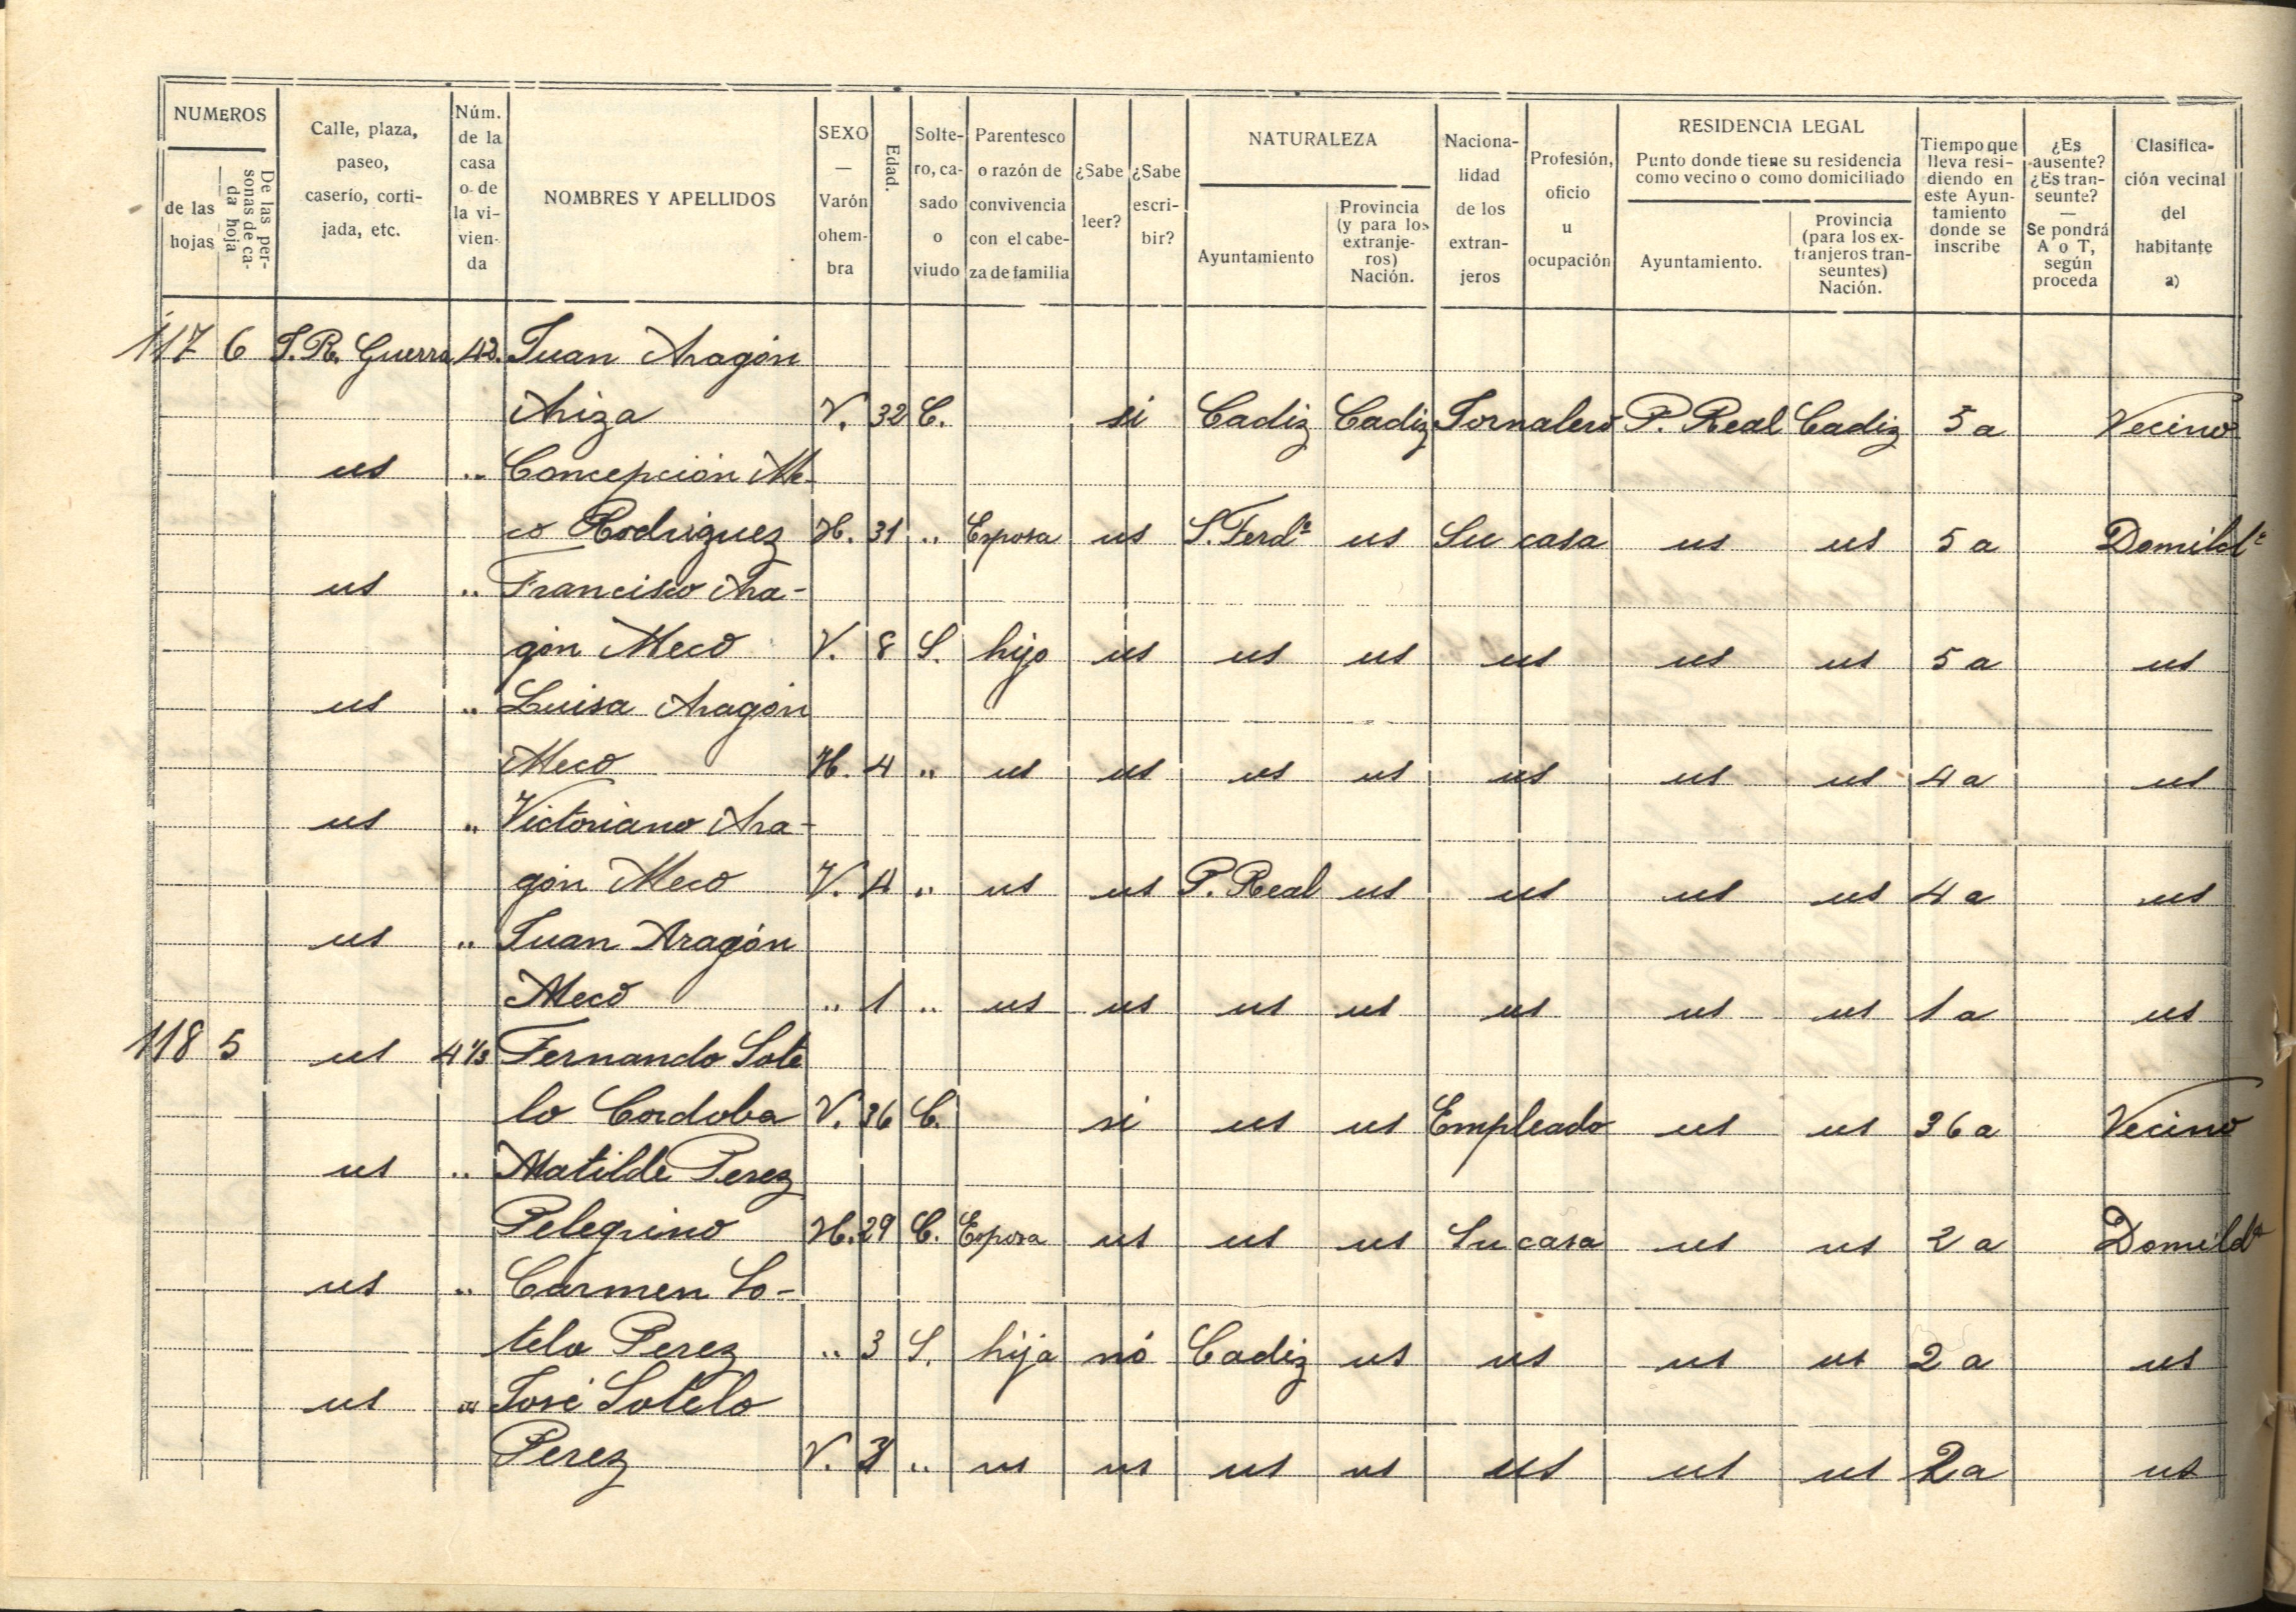 NUMEROS
de las hojas
De las personas de cada hoja
Calle, plaza, paseo, caserío, cortijada, etc.
Núm. de la casa o de la vivienda
NOMBRES Y APELLIDOS
SEXO — Varón o hembra
Edad.
Soltero, casado o viudo
Parentesco o razón de convivencia con el cabeza de familia
¿Sabe leer?
¿Sabe escribir?
NATURALEZA
Ayuntamiento
Provincia (y para los extranjeros) Nación.
Nacionalidad de los extranjeros
Profesión, oficio u ocupación
RESIDENCIA LEGAL
Punto donde tiene su residencia como vecino o como domiciliado
Ayuntamiento.
Provincia (para los extranjeros transeuntes) Nación.
Tiempo que lleva residiendo en este Ayuntamiento donde se inscribe
¿Es ausente? ¿Es transeunte? — Se pondrá A o T, según proceda
Clasificación vecinal del habitante a)
117 6 J. R. Guerra 43. Juan Aragón
Ariza V. 32 C. si Cadiz Cadiz Jornalero P. Real Cadiz 5 a Vecino
us " Concepción Me-
co Rodriguez H. 31 " Esposa us S. Ferdº us Su casa us us 5 a Domildº
us " Francisco Ara-
gón Meco V. 8 S. hijo us us us us us us 5 a us
us " Luisa Aragón
Meco H. 4 " us us us us us us us 4 a us
us " Victoriano Ara-
gón Meco V. 4 " us us P. Real us us us us 4 a us
us " Juan Aragón
Meco " 1 " us us us us us us us 1 a us
118 5 us 4 1/3 Fernando Sote
lo Cordoba V. 36 C. si us us Empleado us us 36 a Vecino
us " Matilde Perez
Pelegrino H. 29 C. Esposa us us us Su casa us us 2 a Domildª
us " Carmen So-
telo Perez " 3 S. hija nó Cadiz us us us us 2 a us
us " José Sotelo
Perez V. 3 " us us us us us us us 2 a us